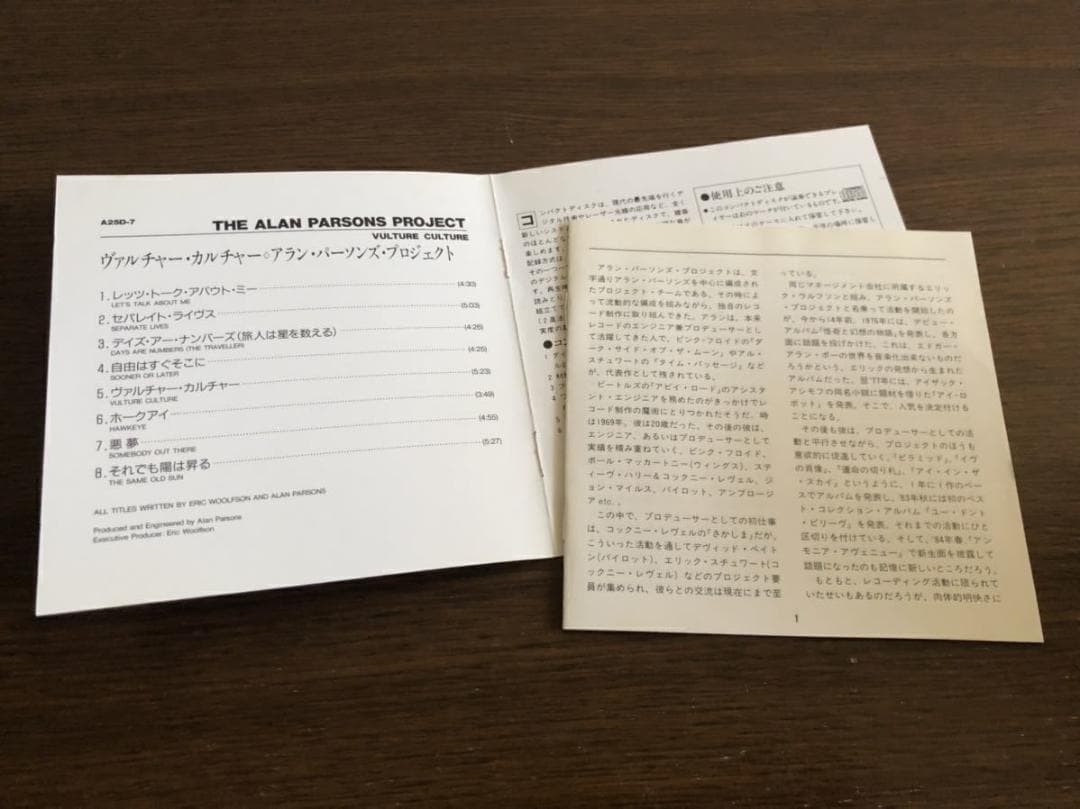 A25D-7
THE ALAN PARSONS PROJECT
VULTURE CULTURE
ヴァルチャー・カルチャー◇アラン・パーソンズ・プロジェクト
1. レッツ・トーク・アバウト・ミー (4:30)
LET'S TALK ABOUT ME
2. セパレイト・ライヴス (5:03)
SEPARATE LIVES
3. デイズ・アー・ナンバーズ(旅人は星を数える) (4:26)
DAYS ARE NUMBERS (THE TRAVELLER)
4. 自由はすぐそこに (4:25)
SOONER OR LATER
5. ヴァルチャー・カルチャー (5:23)
VULTURE CULTURE
6. ホークアイ (3:49)
HAWKEYE
7. 悪夢 (4:55)
SOMEBODY OUT THERE
8. それでも陽は昇る (5:27)
THE SAME OLD SUN
ALL TITLES WRITTEN BY ERIC WOOLFSON AND ALAN PARSONS
Produced and Engineered by Alan Parsons
Executive Producer: Eric Woolfson
コンパクトディスクは、現代の最先端を行くデ
ジタル技術やレーザー光線の応用など、全く
新しいシス
のほとんどな
楽しめます。
記録方式は、
その一つ一
のデジタル
す。再生
読みとり、
組立て
●使用上のご注意
●このコンパクトディスクが演奏できるプレ
イヤーは右のマークが付いているものです。
アラン・パーソンズ・プロジェクトは、文
字通りアラン・パーソンズを中心に編成され
たプロジェクト・チームである。その時によ
って流動的な編成を組みながら、独自のレコ
ード制作に取り組んできた。アランは、本来
レコードのエンジニア兼プロデューサーとし
て活躍してきた人で、ピンク・フロイドの「ダ
ーク・サイド・オブ・ザ・ムーン」やアル・
スチュワートの「タイム・パッセージ」など
が、代表作として残されている。
ビートルズの「アビイ・ロード」のアシスタ
ント・エンジニアを務めたのがきっかけでレ
コード制作の魔術にとりつかれたそうだ。時
は1969年。彼は20歳だった。その後の彼は、
エンジニア、あるいはプロデューサーとして
実績を積み重ねていく。ピンク・フロイド、
ポール・マッカートニー(ウィングス)、ステ
ィーヴ・ハリー&コックニー・レヴェル、ジ
ョン・マイルス、パイロット、アンブロージ
ア etc.。
この中で、プロデューサーとしての初仕事
は、コックニー・レヴェルの「さかしま」だが、
こういった活動を通してデヴィッド・ペイト
ン(パイロット)、エリック・スチュワート(コ
ックニー・レヴェル) などのプロジェクト要
員が集められ、彼らとの交流は現在にまで至
っている。
同じマネージメント会社に所属するエリッ
ク・ウルフソンと組み、アラン・パーソンズ
・プロジェクトと名乗って活動を開始したの
が、今から14年前。1976年には、デビュー・
アルバム「怪奇と幻想の物語」を発表し、各方
面に話題を投げかけた。これは、エドガー・
アラン・ポーの世界を音楽化出来ないものだ
ろうかという、エリックの発想から生まれた
アルバムだった。翌'77年には、アイザック・
アシモフの同名小説に題材を借りた「アイ・ロ
ボット」を発表。そこで、人気を決定付ける
ことになる。
その後も彼は、プロデューサーとしての活
動と平行させながら、プロジェクトのほうも
意欲的に促進していく。「ピラミッド」、「イヴ
の肖像」、「運命の切り札」、「アイ・イン・ザ
・スカイ」というように、1年に1作のペー
スでアルバムを発表し、'83年秋には初のベス
ト・コレクション・アルバム「ユー・ドント
・ビリーヴ」を発表。それまでの活動にひと
区切りを付けている。そして、'84年春「アン
モニア・アヴェニュー」で新生面を披露して
話題になったのも記憶に新しいところだろう。
もともと、レコーディング活動に限られて
いたせいもあるのだろうが、肉体的明快さに
1